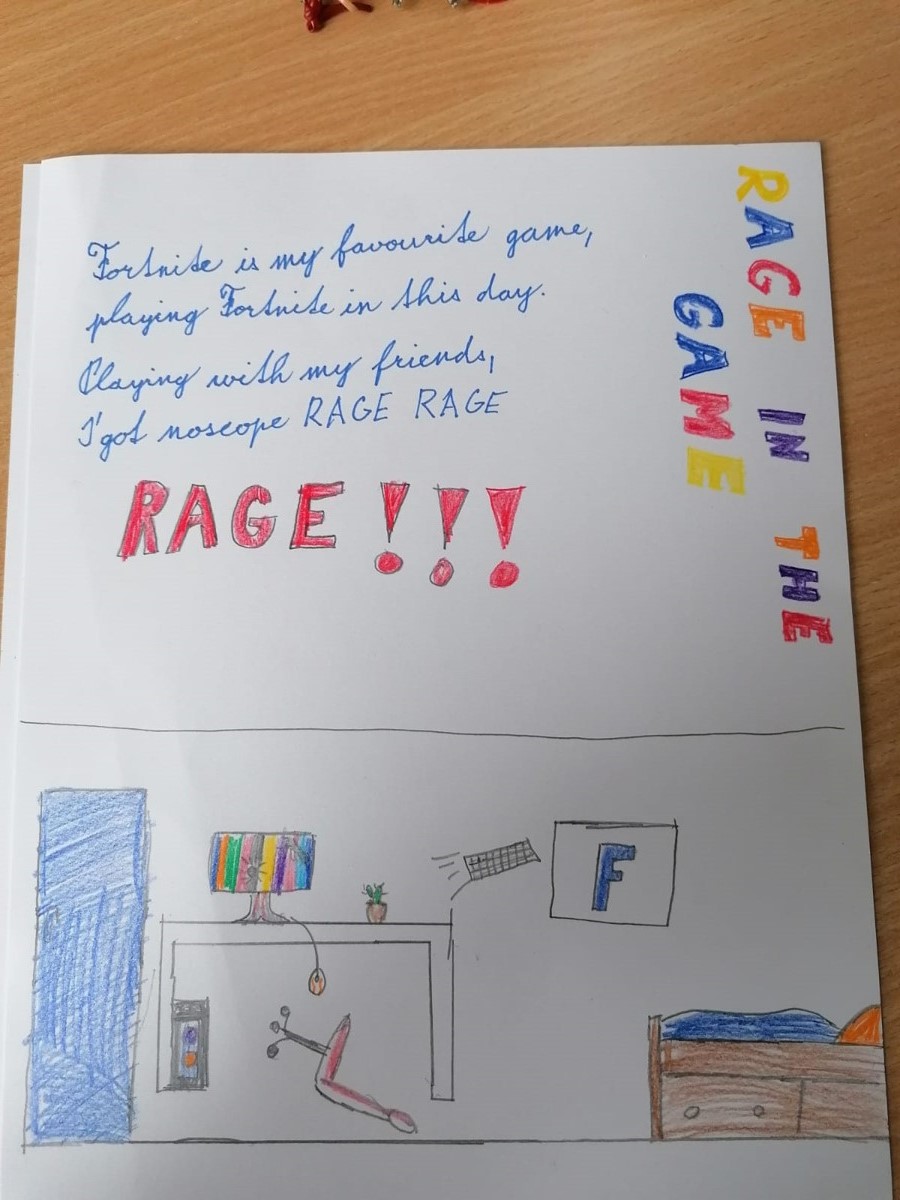 Fortnite is my favourite game,
playing Fortnite in this day.
Playing with my friends,
I'got noscope RAGE RAGE
RAGE!!!
RAGE IN THE
GAME
F